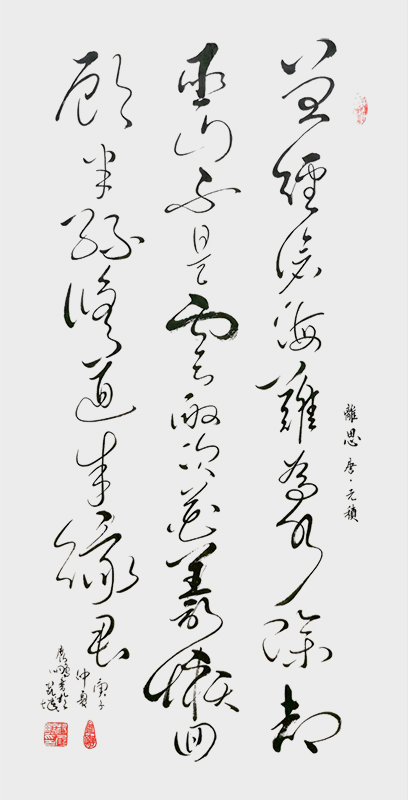 離思 唐·元稹
曾經滄海難為水除却
巫山不是雲取次花叢懶回
顧半緣修道半緣君
庚子
仲夏